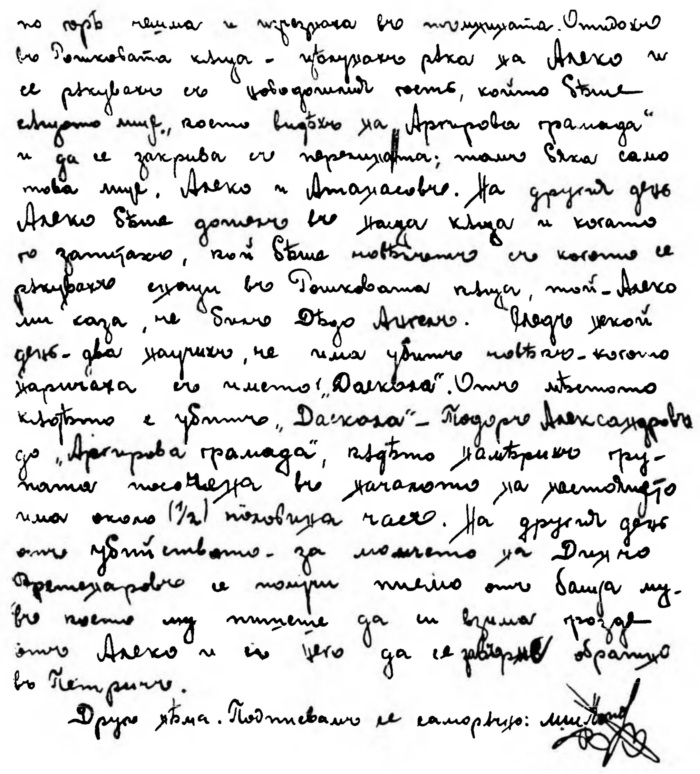 по горѣ чешма и изгезнаха въ тъмнината. Отидохъ
въ Тошковата кѫща – цѣлунахъ рѣка на Алеко и
се рѣкувахъ съ новодошлия гость, който бѣше
сѫщото лице, което видѣхъ на „Аргирова грамада"
и да се закрива съ перешната; тамъ бяха само
това лице, Алеко и Атанасовъ. На другия день
Алеко бѣше дошелъ въ наша кѫща и когато
го запитахъ, кой бѣше човѣкътъ съ когото се
рѣкувахъ снощи въ Тошковата кѫща, той – Алеко
ми каза, че билъ Дѣдо Ангелъ. Следъ нѣкой
день – два научихъ, че има убитъ човѣкъ – когото
наричаха съ името „Даскала". Отъ мѣстото
кѫдѣто е убитъ „Даскала" – Тодоръ Александровъ
до „Аргирова грамада", кѫдѣто намѣрихъ гру-
пата посочена въ началото на настоящето
има около (1/2) половина часъ. На другия день
отъ убийството – за момчето на Динчо
Вретенаровъ се получи писмо отъ баща му –
въ което му пишеше да си взима грозде
отъ Алеко и съ него да се завърне обратно
въ Петричъ.
Друго нѣма. Подписвамъ се саморѫчно: